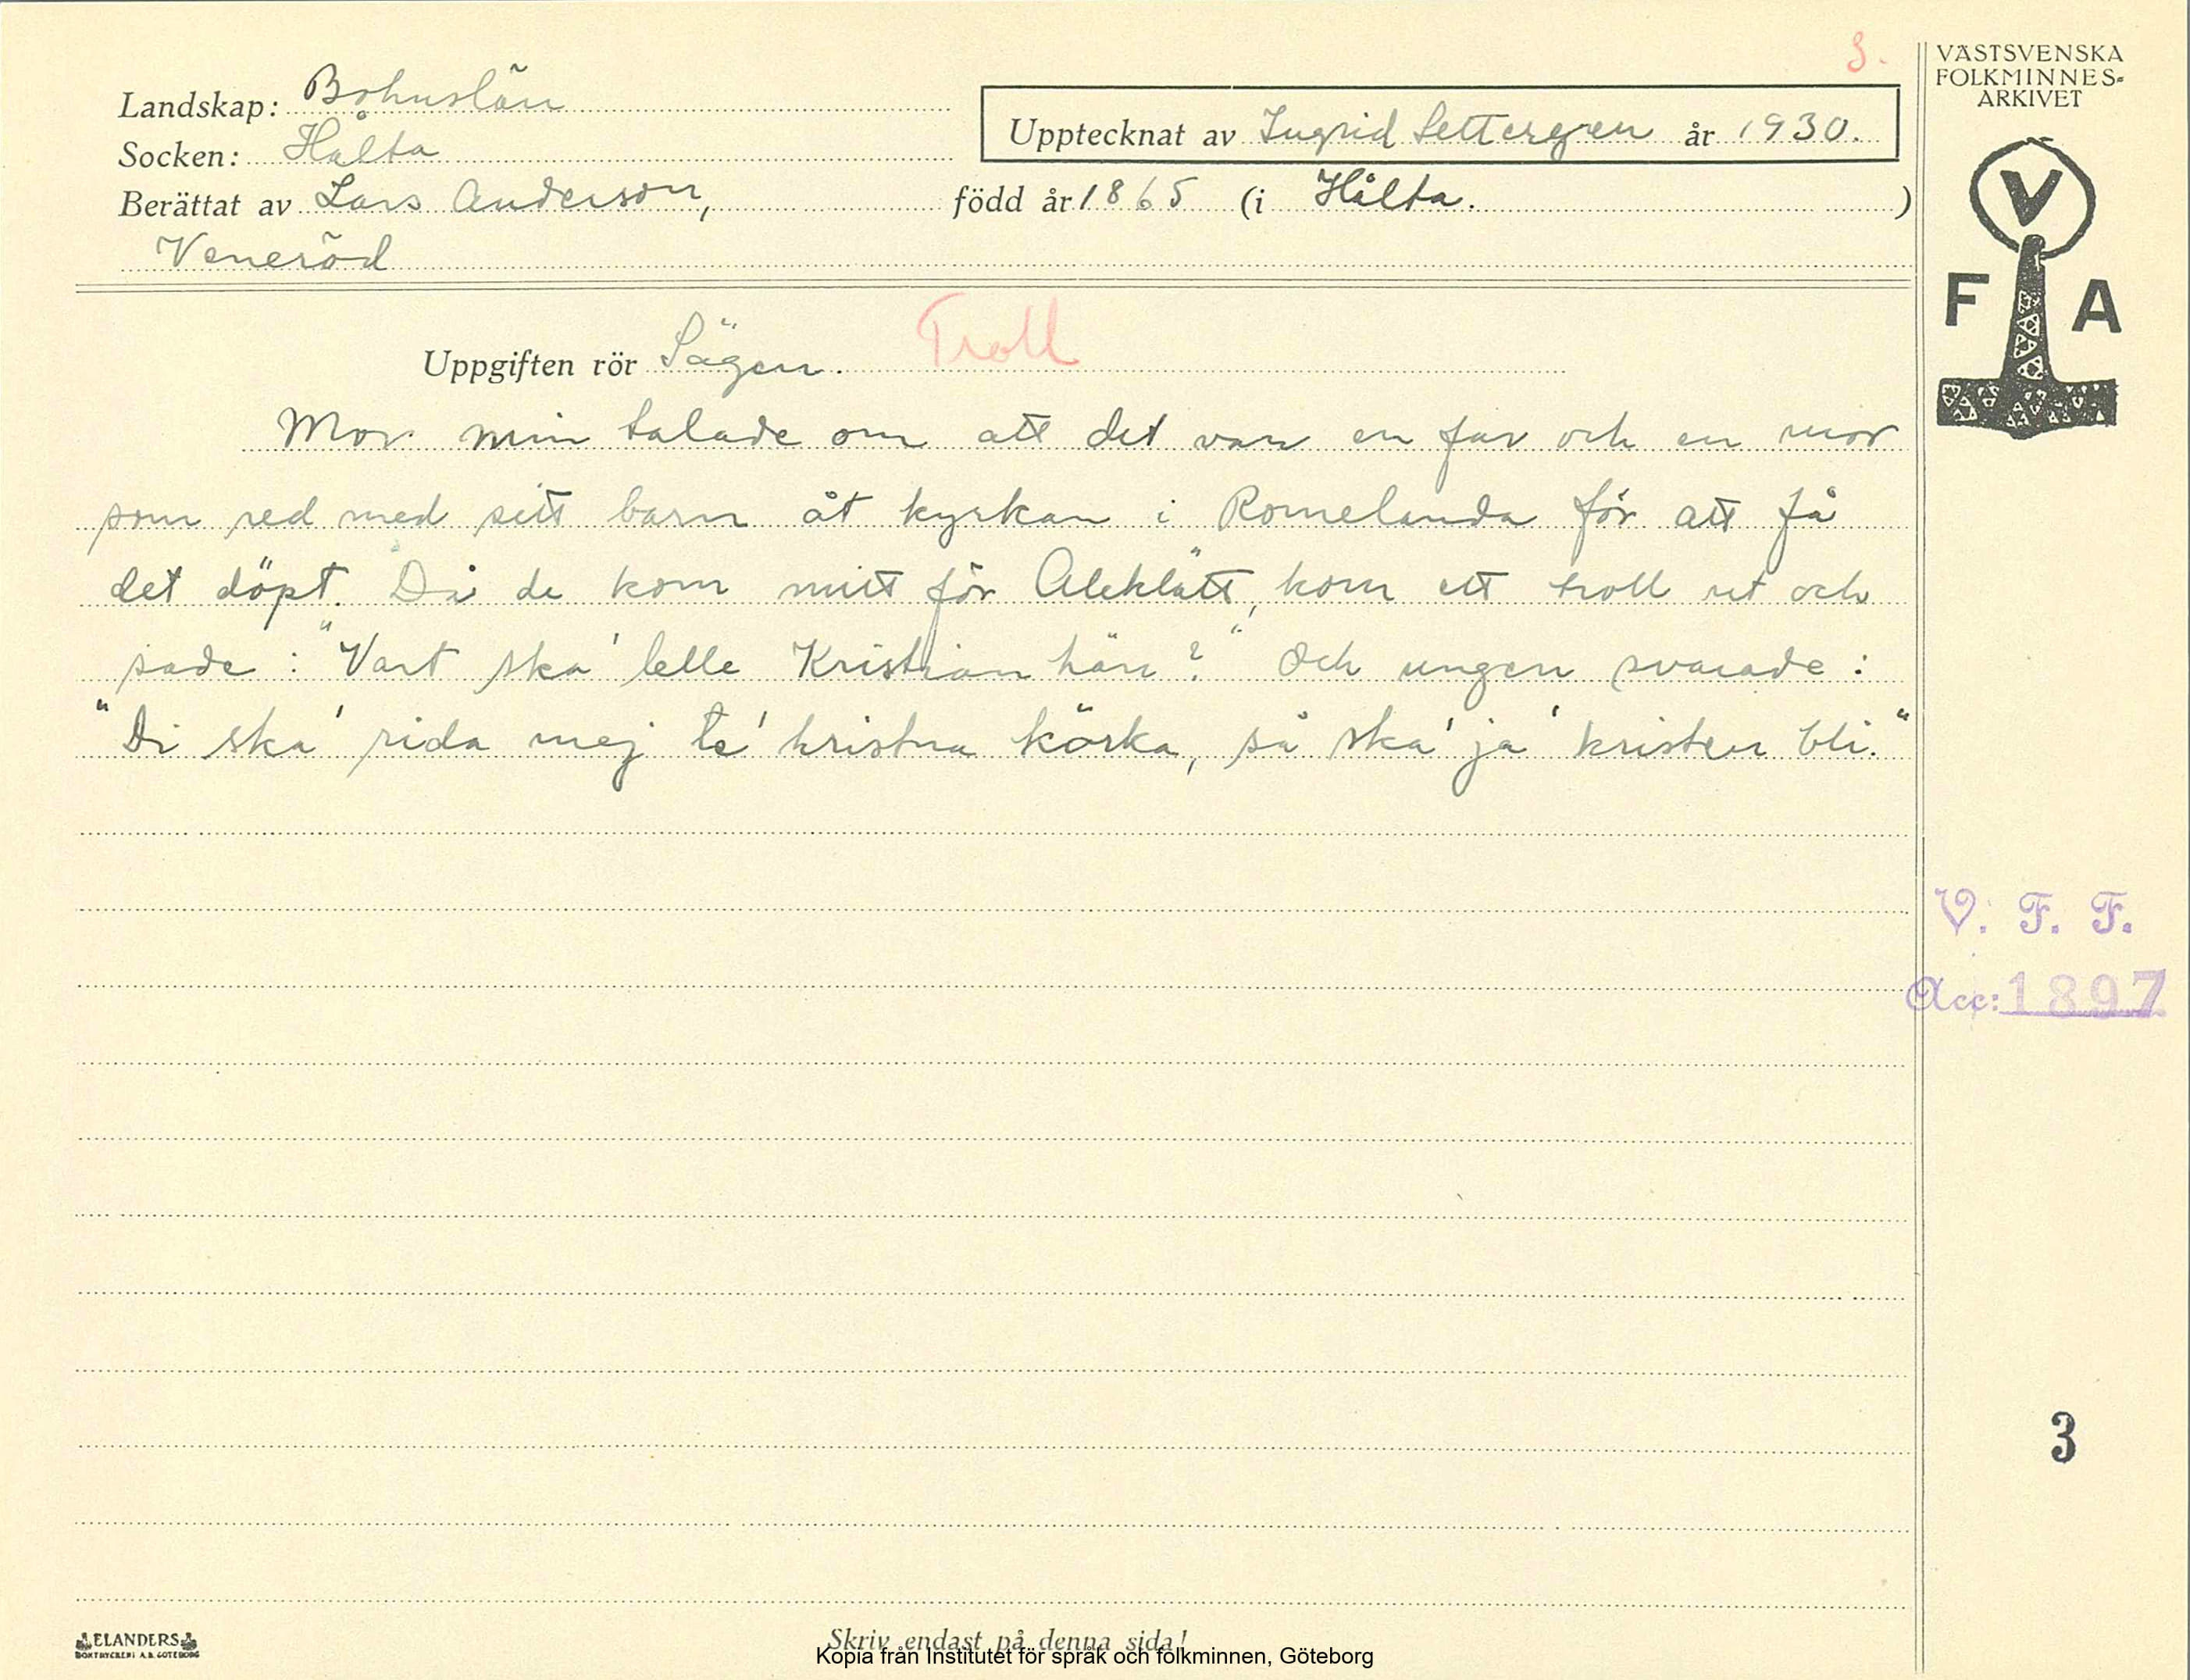 3.
VÄSTSVENSKA
FOLKMINNES-
ARKIVET
Landskap: Bohuslän
Socken: Hålta
Upptecknat av Ingrid Settergren år 1930.
Berättat av Lars Anderson, född år 1865 (i Hålta. )
Veneröd
V
F A
Uppgiften rör Sägen. Troll
Mor min talade om att det var en far och en mor
som red med sitt barn åt kyrkan i Romelanda för att få
det döpt. Då de kom mitt för Aleklätt, kom ett troll ut och
sade: "Vart ska' lelle Kristian hän?" Och ungen svarade:
"Di ska' rida mej te' kristna körka, så ska' ja' kristen bli."
V. F. F.
Acc: 1897
3
ELANDERS
BOKTRYCKERI A.B. GÖTEBORG
Skriv endast på denna sida!
Kopia från Institutet för språk och folkminnen, Göteborg